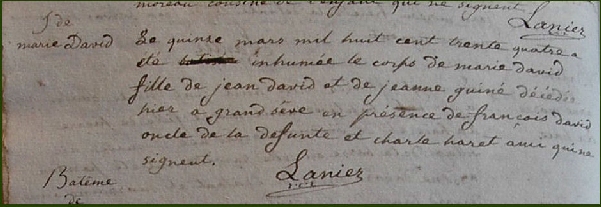 moreau cousine de l'enfant qui ne signent
Laniez
S. de
marie David
Le quinse mars mil huit cent trente quatre a
été inhumée le corps de marie david
fille de jean david et de jeanne guiné décédé
hier a grand sève en présence de françois david
oncle de la defunte et charle haret ami qui ne
signent.
Laniez
Batême
de